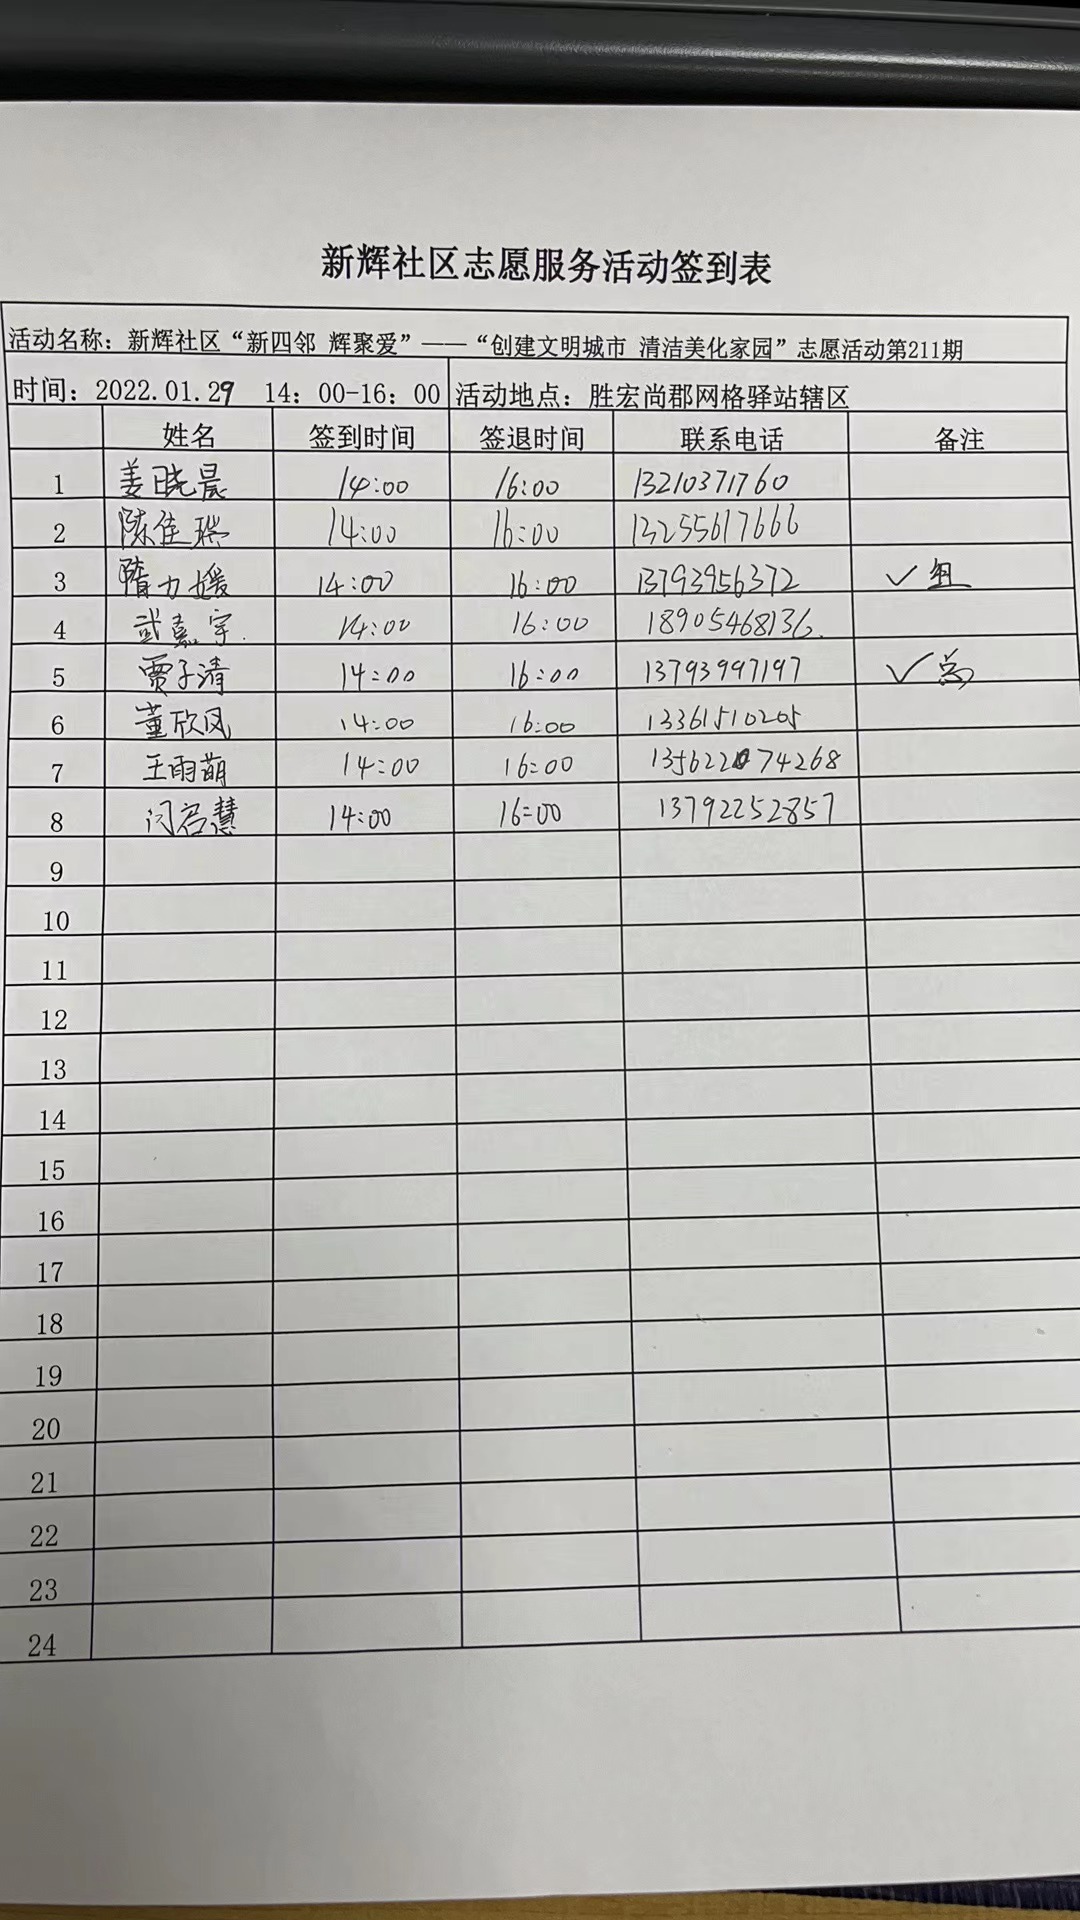 新辉社区志愿服务活动签到表
活动名称：新辉社区“新四邻 辉聚爱”——“创建文明城市 清洁美化家园”志愿活动第211期
时间：2022.01.29 14：00-16：00 活动地点：胜宏尚郡网格驿站辖区
姓名 签到时间 签退时间 联系电话 备注
1 姜晓晨 14:00 16:00 13210371760
2 陈佳瑞 14:00 16:00 13255617666
3 隋力媛 14:00 16:00 13793956372 ✓
4 武嘉宇 14:00 16:00 18905468136
5 贾子清 14:00 16:00 13793997197 ✓
6 董欣凤 14:00 16:00 13361510205
7 王雨萌 14:00 16:00 135622074268
8 闫启慧 14:00 16:00 13792252857
9
10
11
12
13
14
15
16
17
18
19
20
21
22
23
24